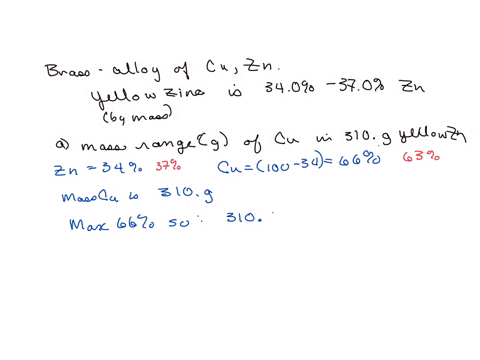 Brass - alloy of Cu, Zn.
Yellow Zinc is 34.0% - 37.0% Zn
(by mass)
a) mass range (g) of Cu in 310. g yellow Zn
Zn = 34% 37% Cu = (100-34) = 66% 63%
Mass Cu is 310. g
Max 66% so : 310.